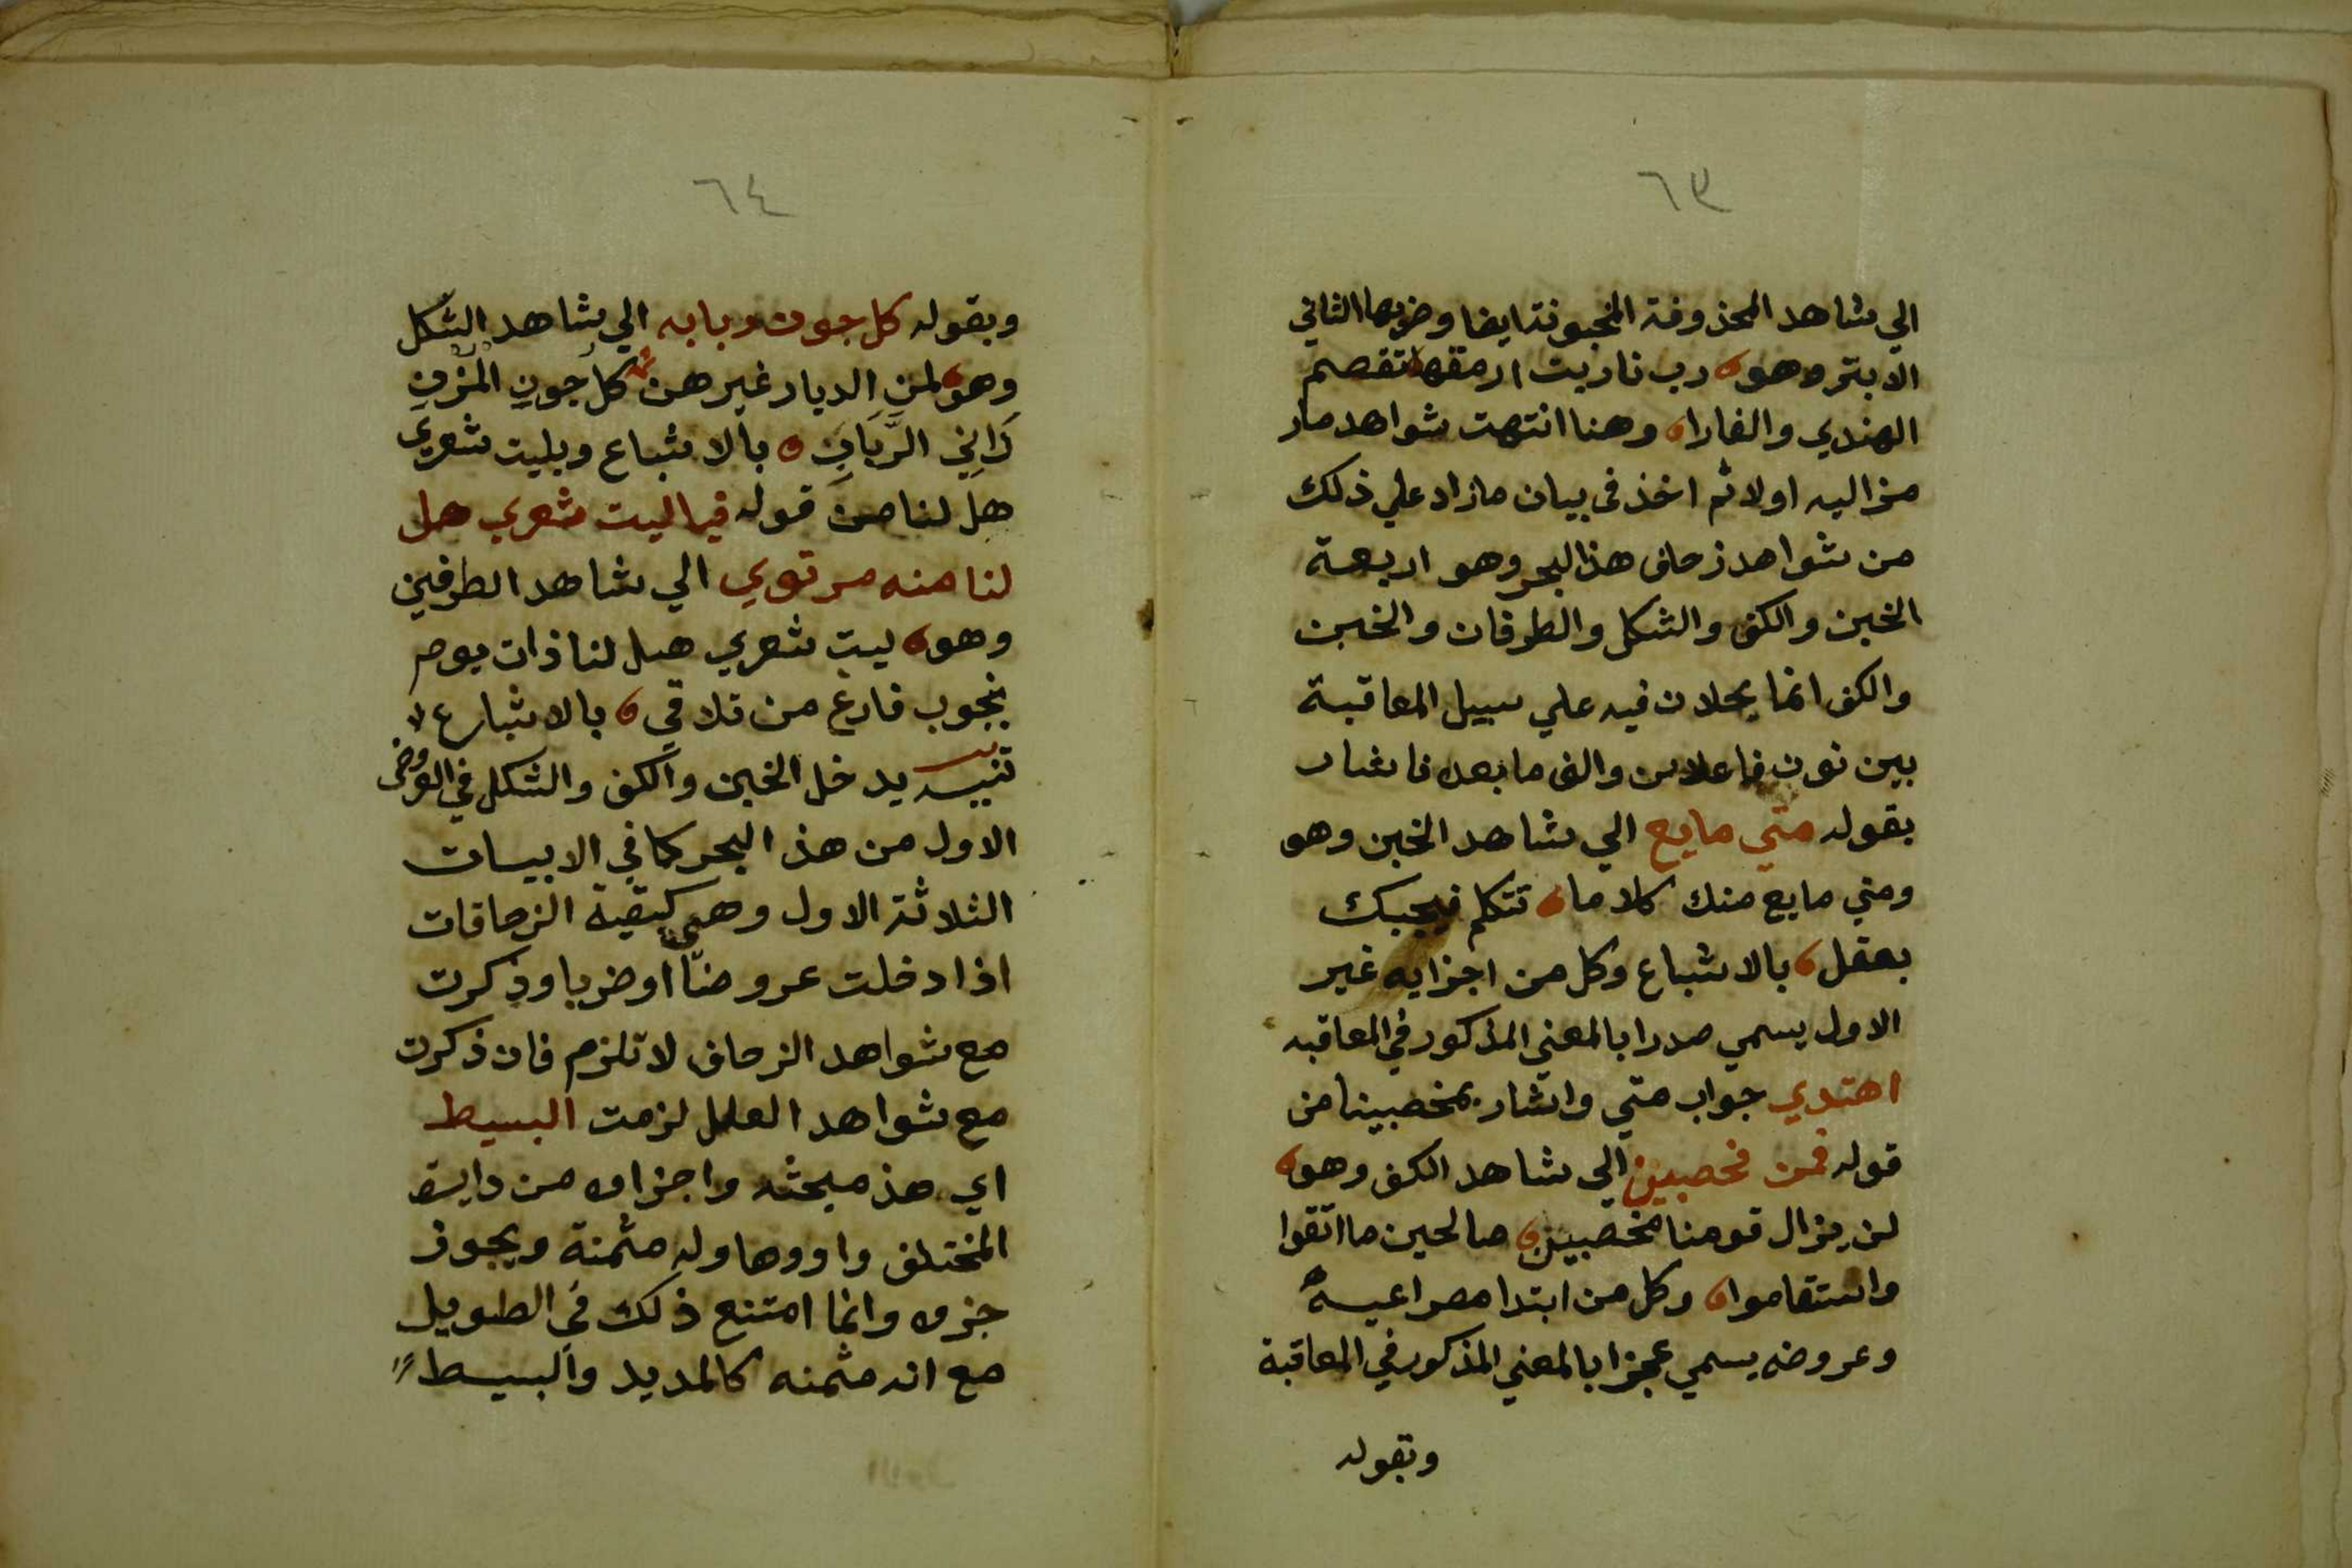 ٦٣
الي شاهد المحذوفة المخبونة ايضا وضربها الثاني
الابتر وهو رب نار بت ارمقها تقصم
الهندي والغارا وهنا انتهت شواهد مار
مز اليه اولا ثم اخذ في بيان ما زاد علي ذلك
من شواهد زحاف هذا البحر وهو اربعة
الخبن والكف والشكل والطرفان والخبن
والكف انما يحلان فيه علي سبيل المعاقبة
بين نون فاعلاتن والف ما بعده فاشار
بقوله متي مايع الي شاهد الخبن وهو
ومتي مايع منك كلاما تتكلم فيجبك
بعقل بالاشباع وكل من اجزايه غير
الاول يسمي صدرا بالمعني المذكور في المعاقبه
اهتدي جواب متي واشار بمخصبينا من
قوله فمن مخصبين الي شاهد الكف وهو
لن يزال قومنا مخصبين صالحين ما اتقوا
واستقاموا وكل من ابتدا مصراعيه
وعروضه يسمي عجزا بالمعني المذكور في المعاقبة
وبقوله
٦٤
وبقوله كل جون ربابه الي شاهد الشكل
وهو لمن الديار غيرهن كل جون المزن
دَانِي الرَّبَابِ بالاشباع وبليت شعري
هل لنا من قوله فيا ليت شعري هل
لنا منه مرتوي الي شاهد الطرفين
وهو ليت شعري هل لنا ذات يوم
بجنوب فارع من تلاقي بالاشباع
تنبيه يدخل الخبن والكف والشكل في العروض
الاول من هذ البحر كما في الابيات
الثلاثة الاول وهي كبقية الزحافات
اذا دخلت عروضًا او ضربا وذكرت
مع شواهد الزحاف لا تلزم فان ذكرت
مع شواهد العلل لزمت البسيط
اي هذ مبحثه واجزاوه من دايرة
المختلف واووها وله مثمنة ويجوز
جزوه وانما امتنع ذلك في الطويل
مع انه مثمنه كالمديد والبسيط